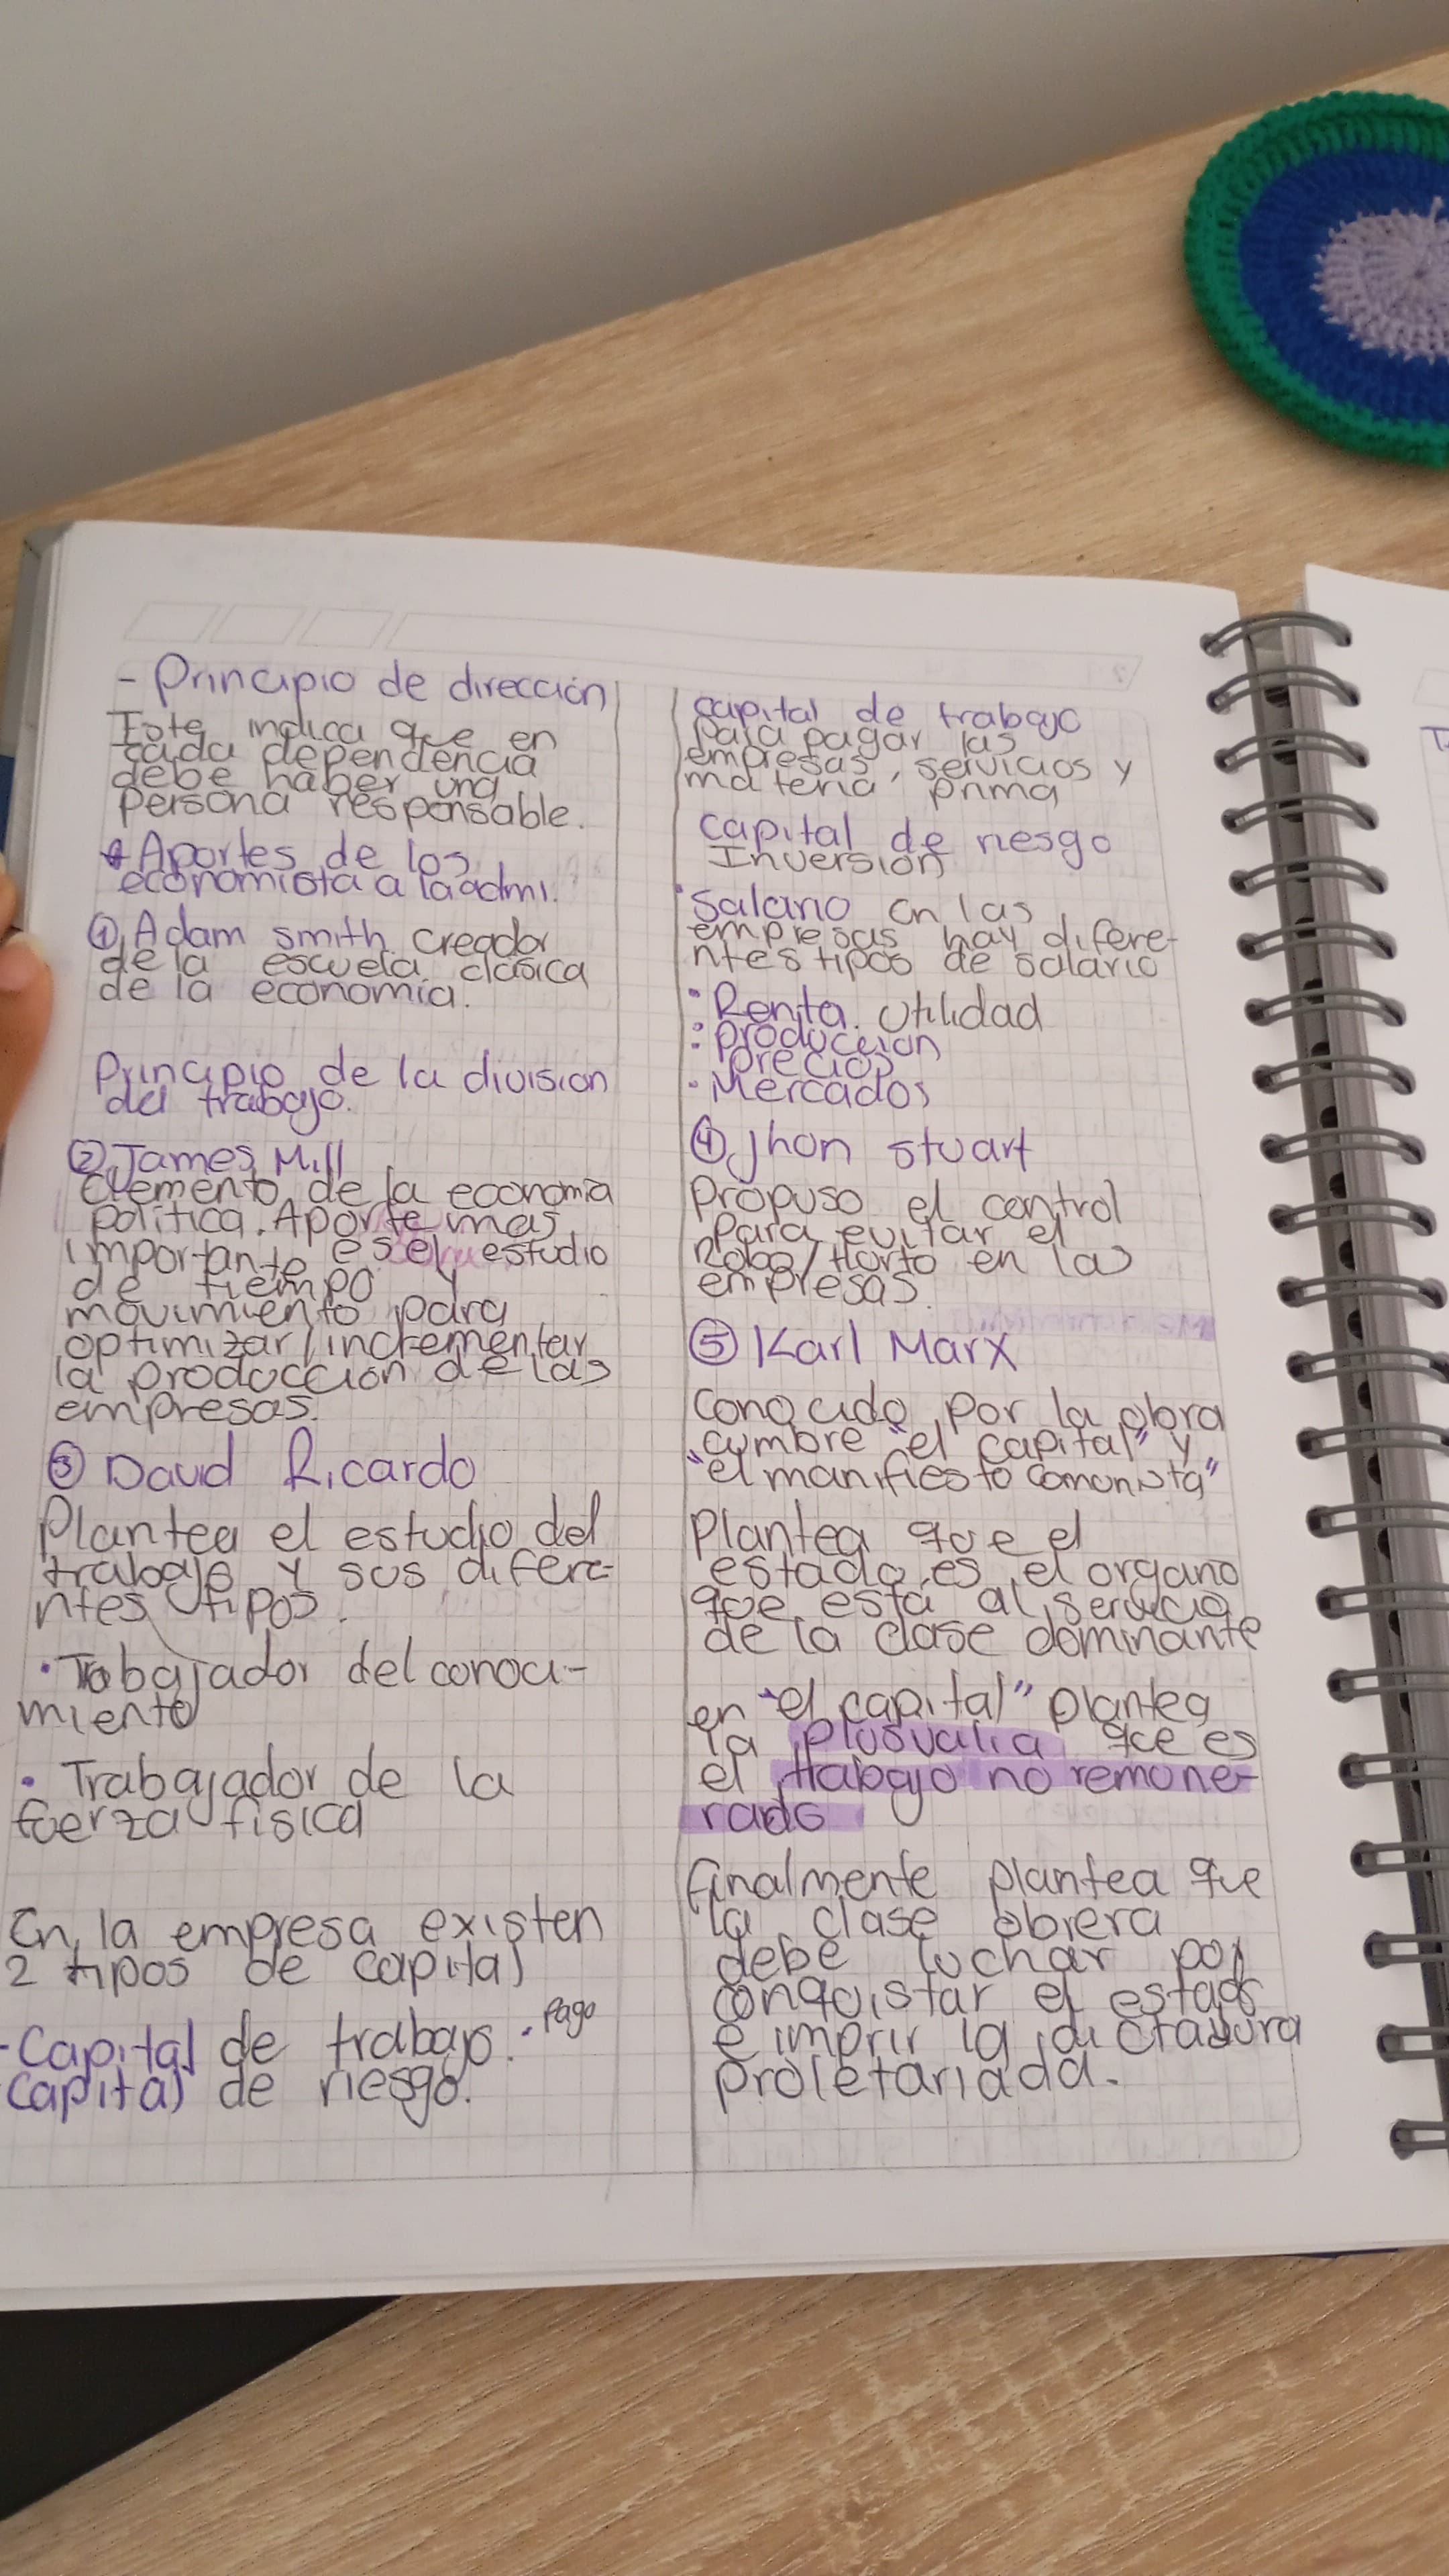 - Principio de dirección
Este indica que en
cada dependencia
debe haber una
persona responsable.
Aportes de los
economista a la admi.
① Adam smith. creador
de la escuela clásica
de la economía.
Principio de la division
del trabajo.
② James Mill
Elemento de la economia
política. Aporte mas
importante es el estudio
de tiempo y
movimiento para
optimizar/incrementar
la producción de las
empresas.
③ David Ricardo
Plantea el estudio del
trabajo y sus difere-
ntes tipos.
• Trabajador del conoci-
miento
• Trabajador de la
fuerza física
En la empresa existen
2 tipos de capital
- Capital de trabajo. • Pago
- Capital de riesgo.
capital de trabajo
para pagar las
empresas, servicios y
materia prima
capital de riesgo
Inversión
• Salario en las
empresas hay difere-
ntes tipos de salario
• Renta. Utilidad
• produccion
• precios
• Mercados
④ Jhon stuart
Propuso el control
para evitar el
Robo/Hurto en las
empresas.
⑤ Karl Marx
Conocido por la obra
cumbre "el capital" y
"el manifiesto comunista"
Plantea que el
estado es el organo
que está al servicio
de la clase dominante
en "el capital" plantea
la plusvalia que es
el trabajo no remune-
rado
finalmente plantea que
la clase obrera
debe luchar por
conquistar el estado
e imprir la dictadura
proletariada.